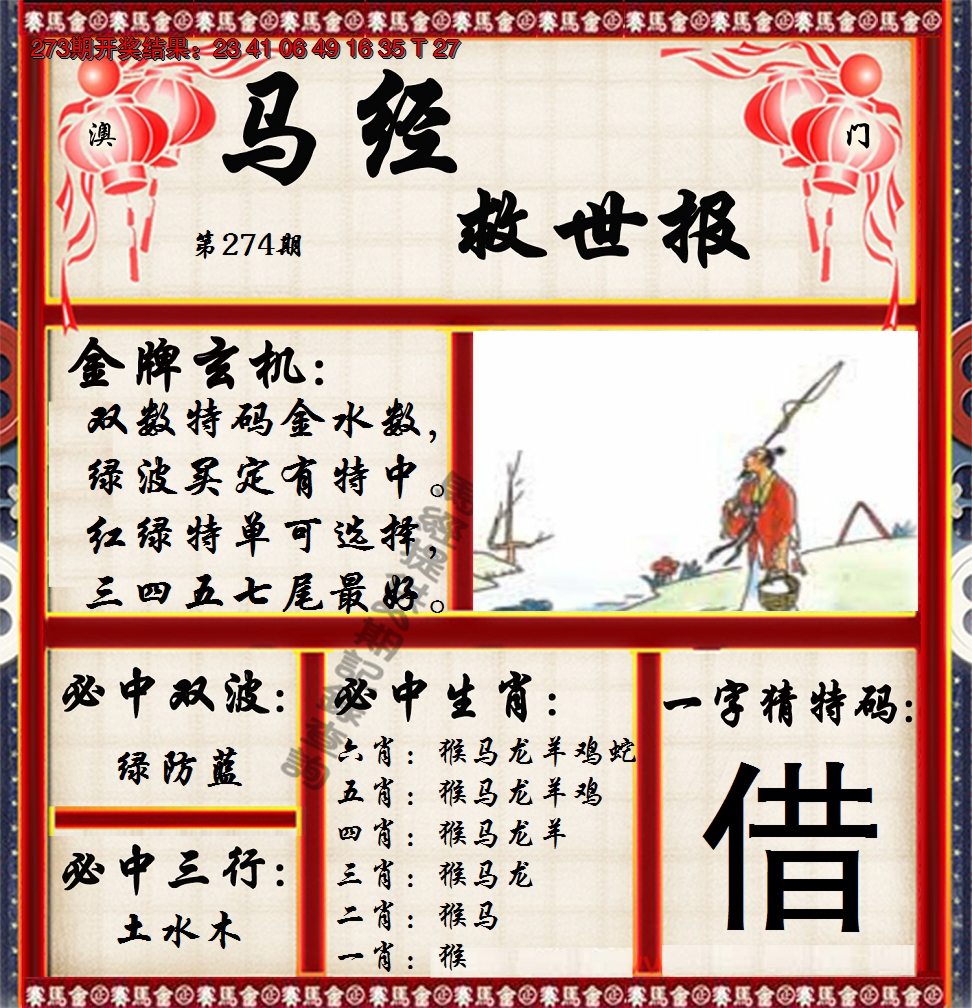 273期开奖结果：23 41 06 49 16 35 T 27
澳
门
马经
救世报
第274期
金牌玄机：
双数特码金水数，
绿波买定有特中。
红绿特单可选择，
三四五七尾最好。
必中双波：
绿防蓝
必中三行：
土水木
必中生肖：
六肖：猴马龙羊鸡蛇
五肖：猴马龙羊鸡
四肖：猴马龙羊
三肖：猴马龙
二肖：猴马
一肖：猴
一字猜特码：
借